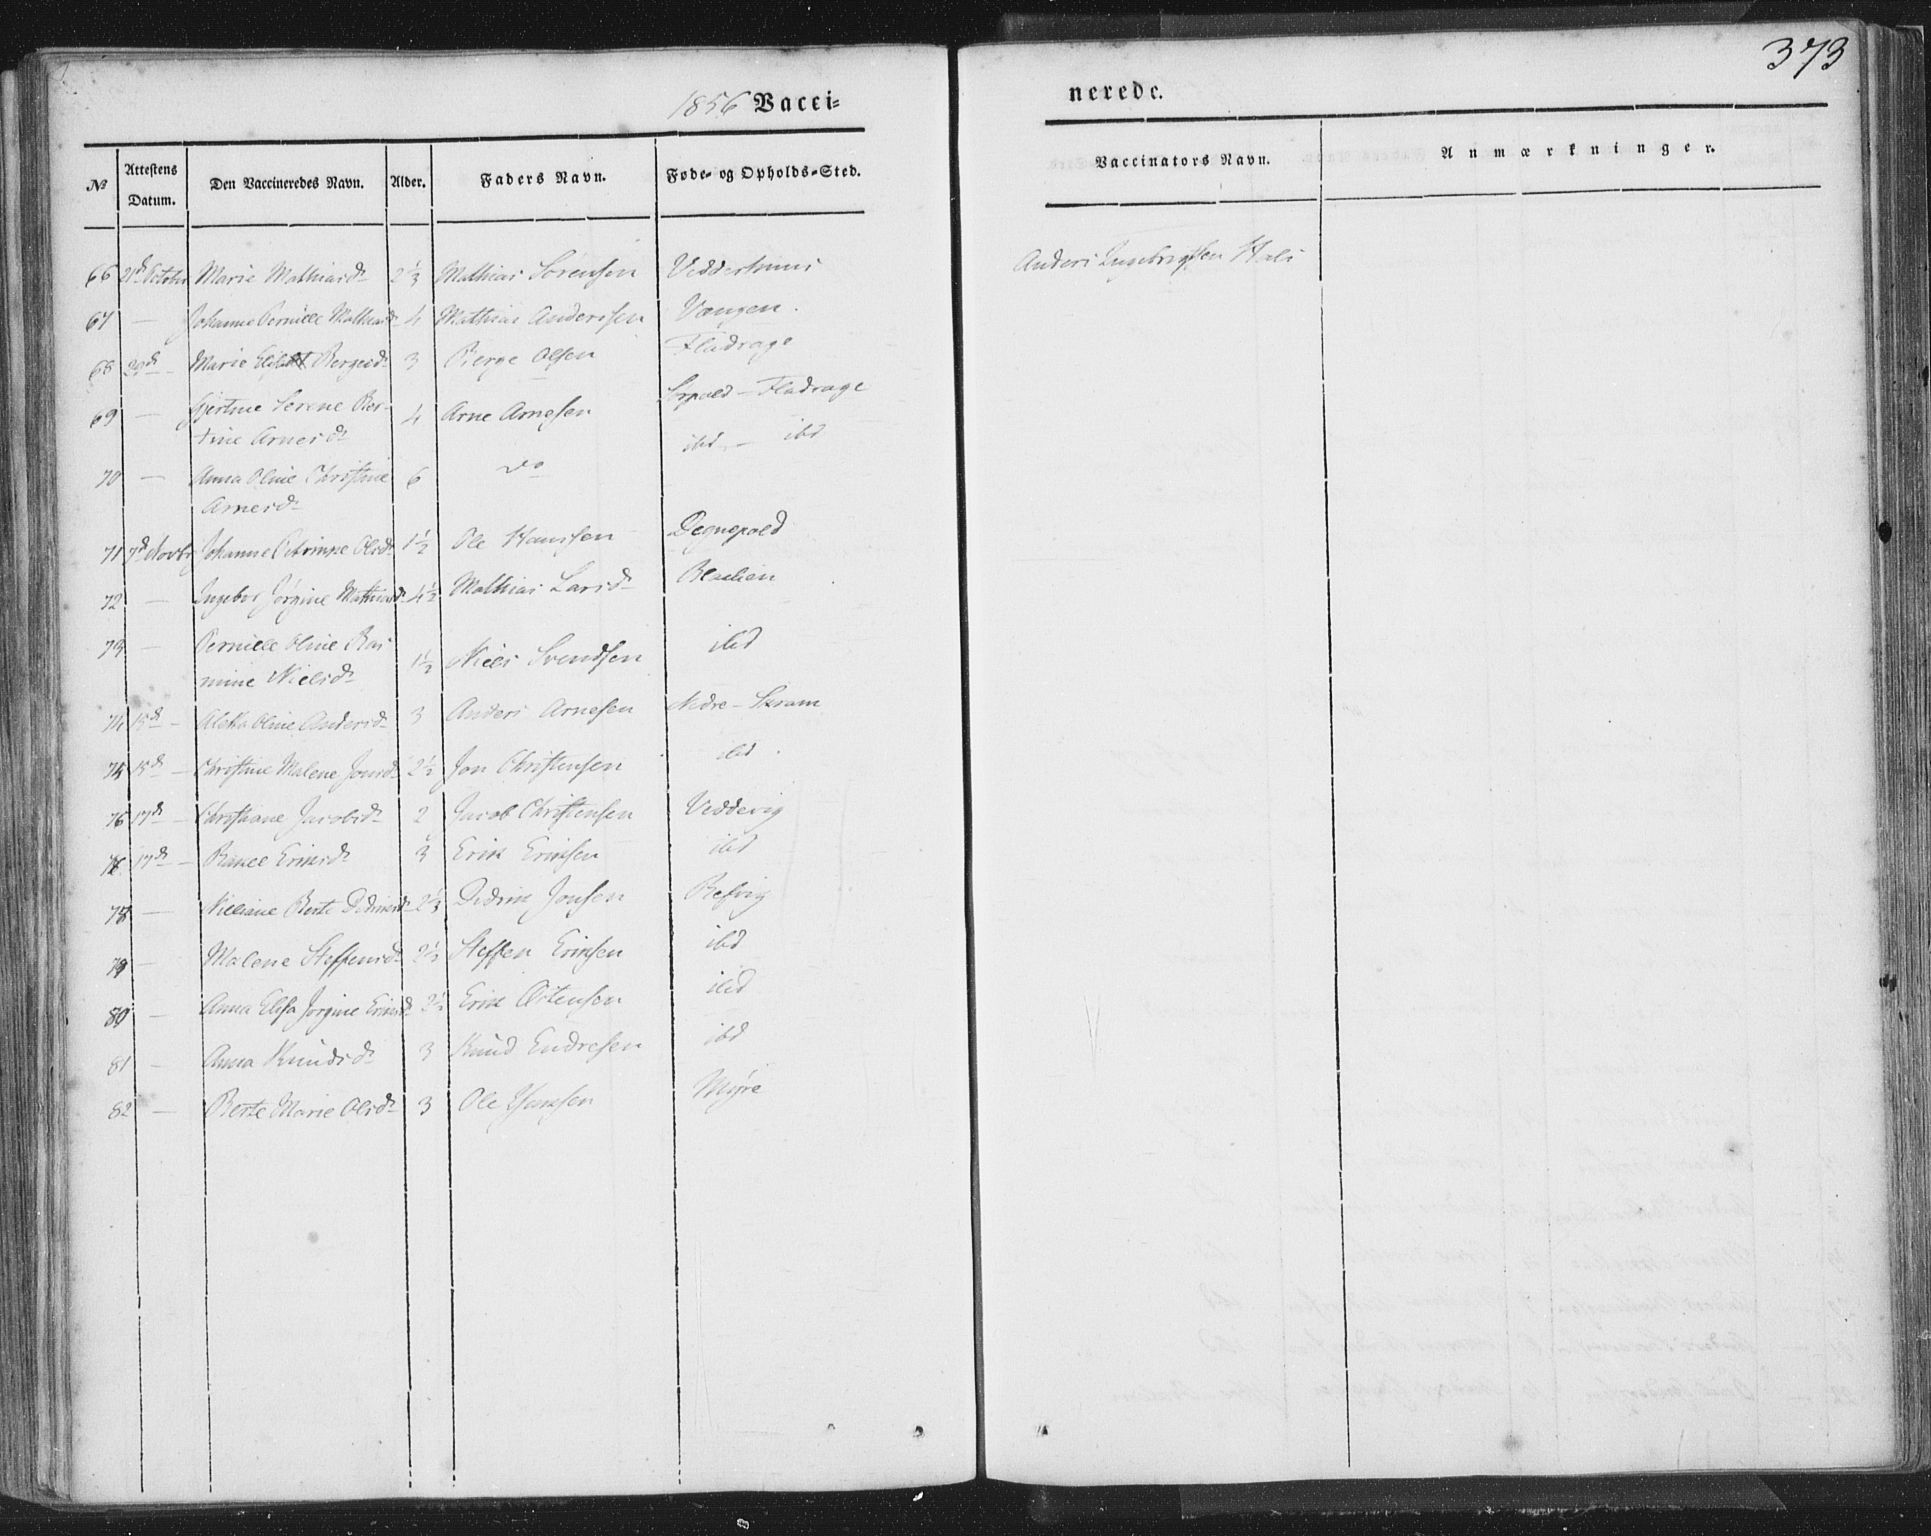 373
1856 Vacci= nerede.
№ Attestens Datum. Den Vaccineredes Navn. Alder. Faders Navn. Føde- og Opholds-Sted. Vaccinators Navn. Anmærkninger.
66 21d October Marie Mathiasd. 2 1/3 Mathias Sørensen Anders Ingebrigtsen Hals
67 — Johanne Pernille Mathiasd. 4 Mathias Anderssen Vangen.
68 29d — Marie Bergesd. 3 Berge Olsen Fladrage
69 — Gjertine Serene Ber-
tine Arnesd. 4 Arne Arnesen — Fladrage
70 — Anna Oline Christine 6 do ibd — ibd
Arnesd.
71 7d Novbr Johanne Olsd. 1 1/2 Ole Hanssen Degnepold
72 — Ingebor Jørgine Mathiasd. 4 1/2 Mathias Larsd.
73 — Pernille Oline Ras
mine Nielsd. 1 1/2 Niels Svendsen ibd
74 15d — Oline Andersd. 3 Anders Arnesen Nedre — Skram
75 15d — Christine Malene Jonsd. 2 1/2 Jon Christensen ibd.
76 17d — Christiane Jacobsd. 2 Jacob Christensen Veddevig
17d — Eriksd. 3 Erik Eriksen ibd
78 — Nilliane Berte Didriksd. 2 1/3 Didrik Jonsen Refvig
79 — Malene Steffensd. 2 1/2 Steffen Eriksen ibd
80 — Anna Elisa Jørgine Eriksd. 2 1/2 Erik ibd
81 — Anna Knudsd. 3 Knud Endresen ibd
82 — Berte Marie Olsd. 3 Ole Myre